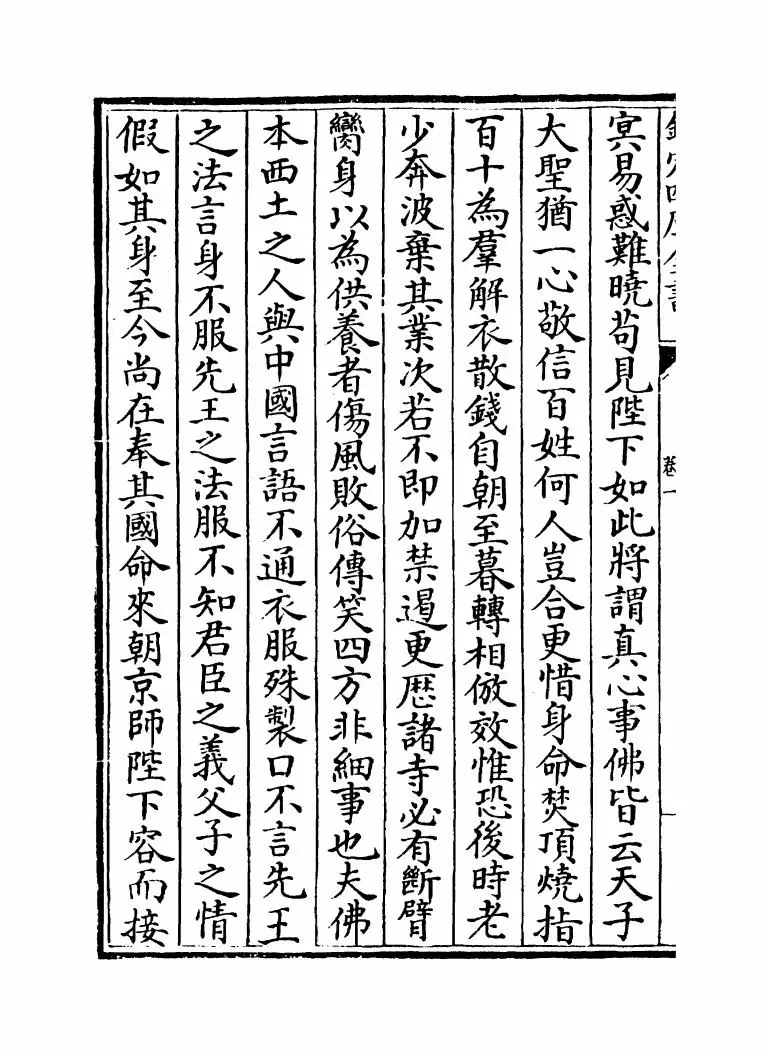 卷一
冥易惑難曉茍見陛下如此將謂真心事佛皆云天子
大聖猶一心敬信百姓何人豈合更惜身命焚頂燒指
百十為羣解衣散錢自朝至暮轉相倣效惟恐後時老
少奔波棄其業次若不即加禁遏更厯諸寺必有斷臂
臠身以為供養者傷風敗俗傳笑四方非細事也夫佛
本西土之人與中國言語不通衣服殊製口不言先王
之法言身不服先王之法服不知君臣之義父子之情
假如其身至今尚在奉其國命來朝京師陛下容而接